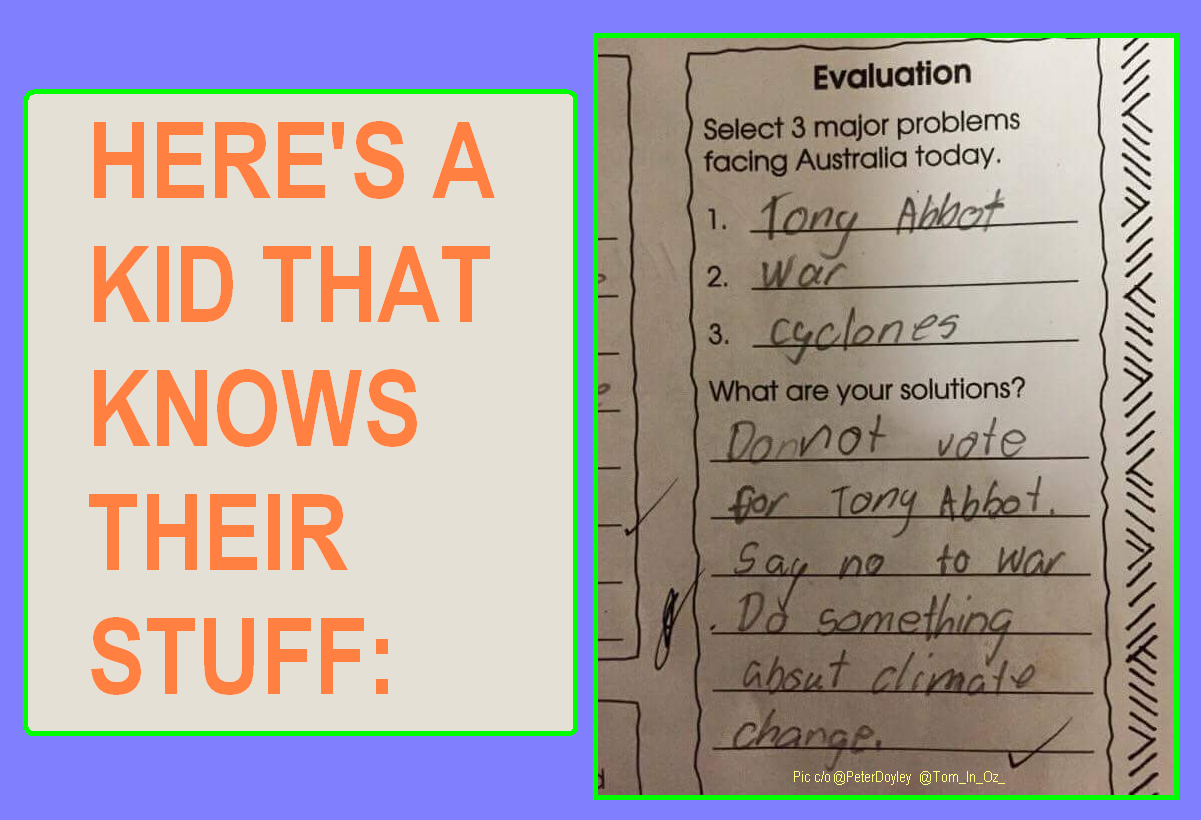 HERE'S A
KID THAT
KNOWS
THEIR
STUFF:
Evaluation
Select 3 major problems
facing Australia today.
1. Tony Abbot
2. War
3. cyclones
What are your solutions?
Donnot vote
for Tony Abbot.
Say no to war
. Do something
about climate
change.
Pic c/o @PeterDoyley @Tom_In_Oz_